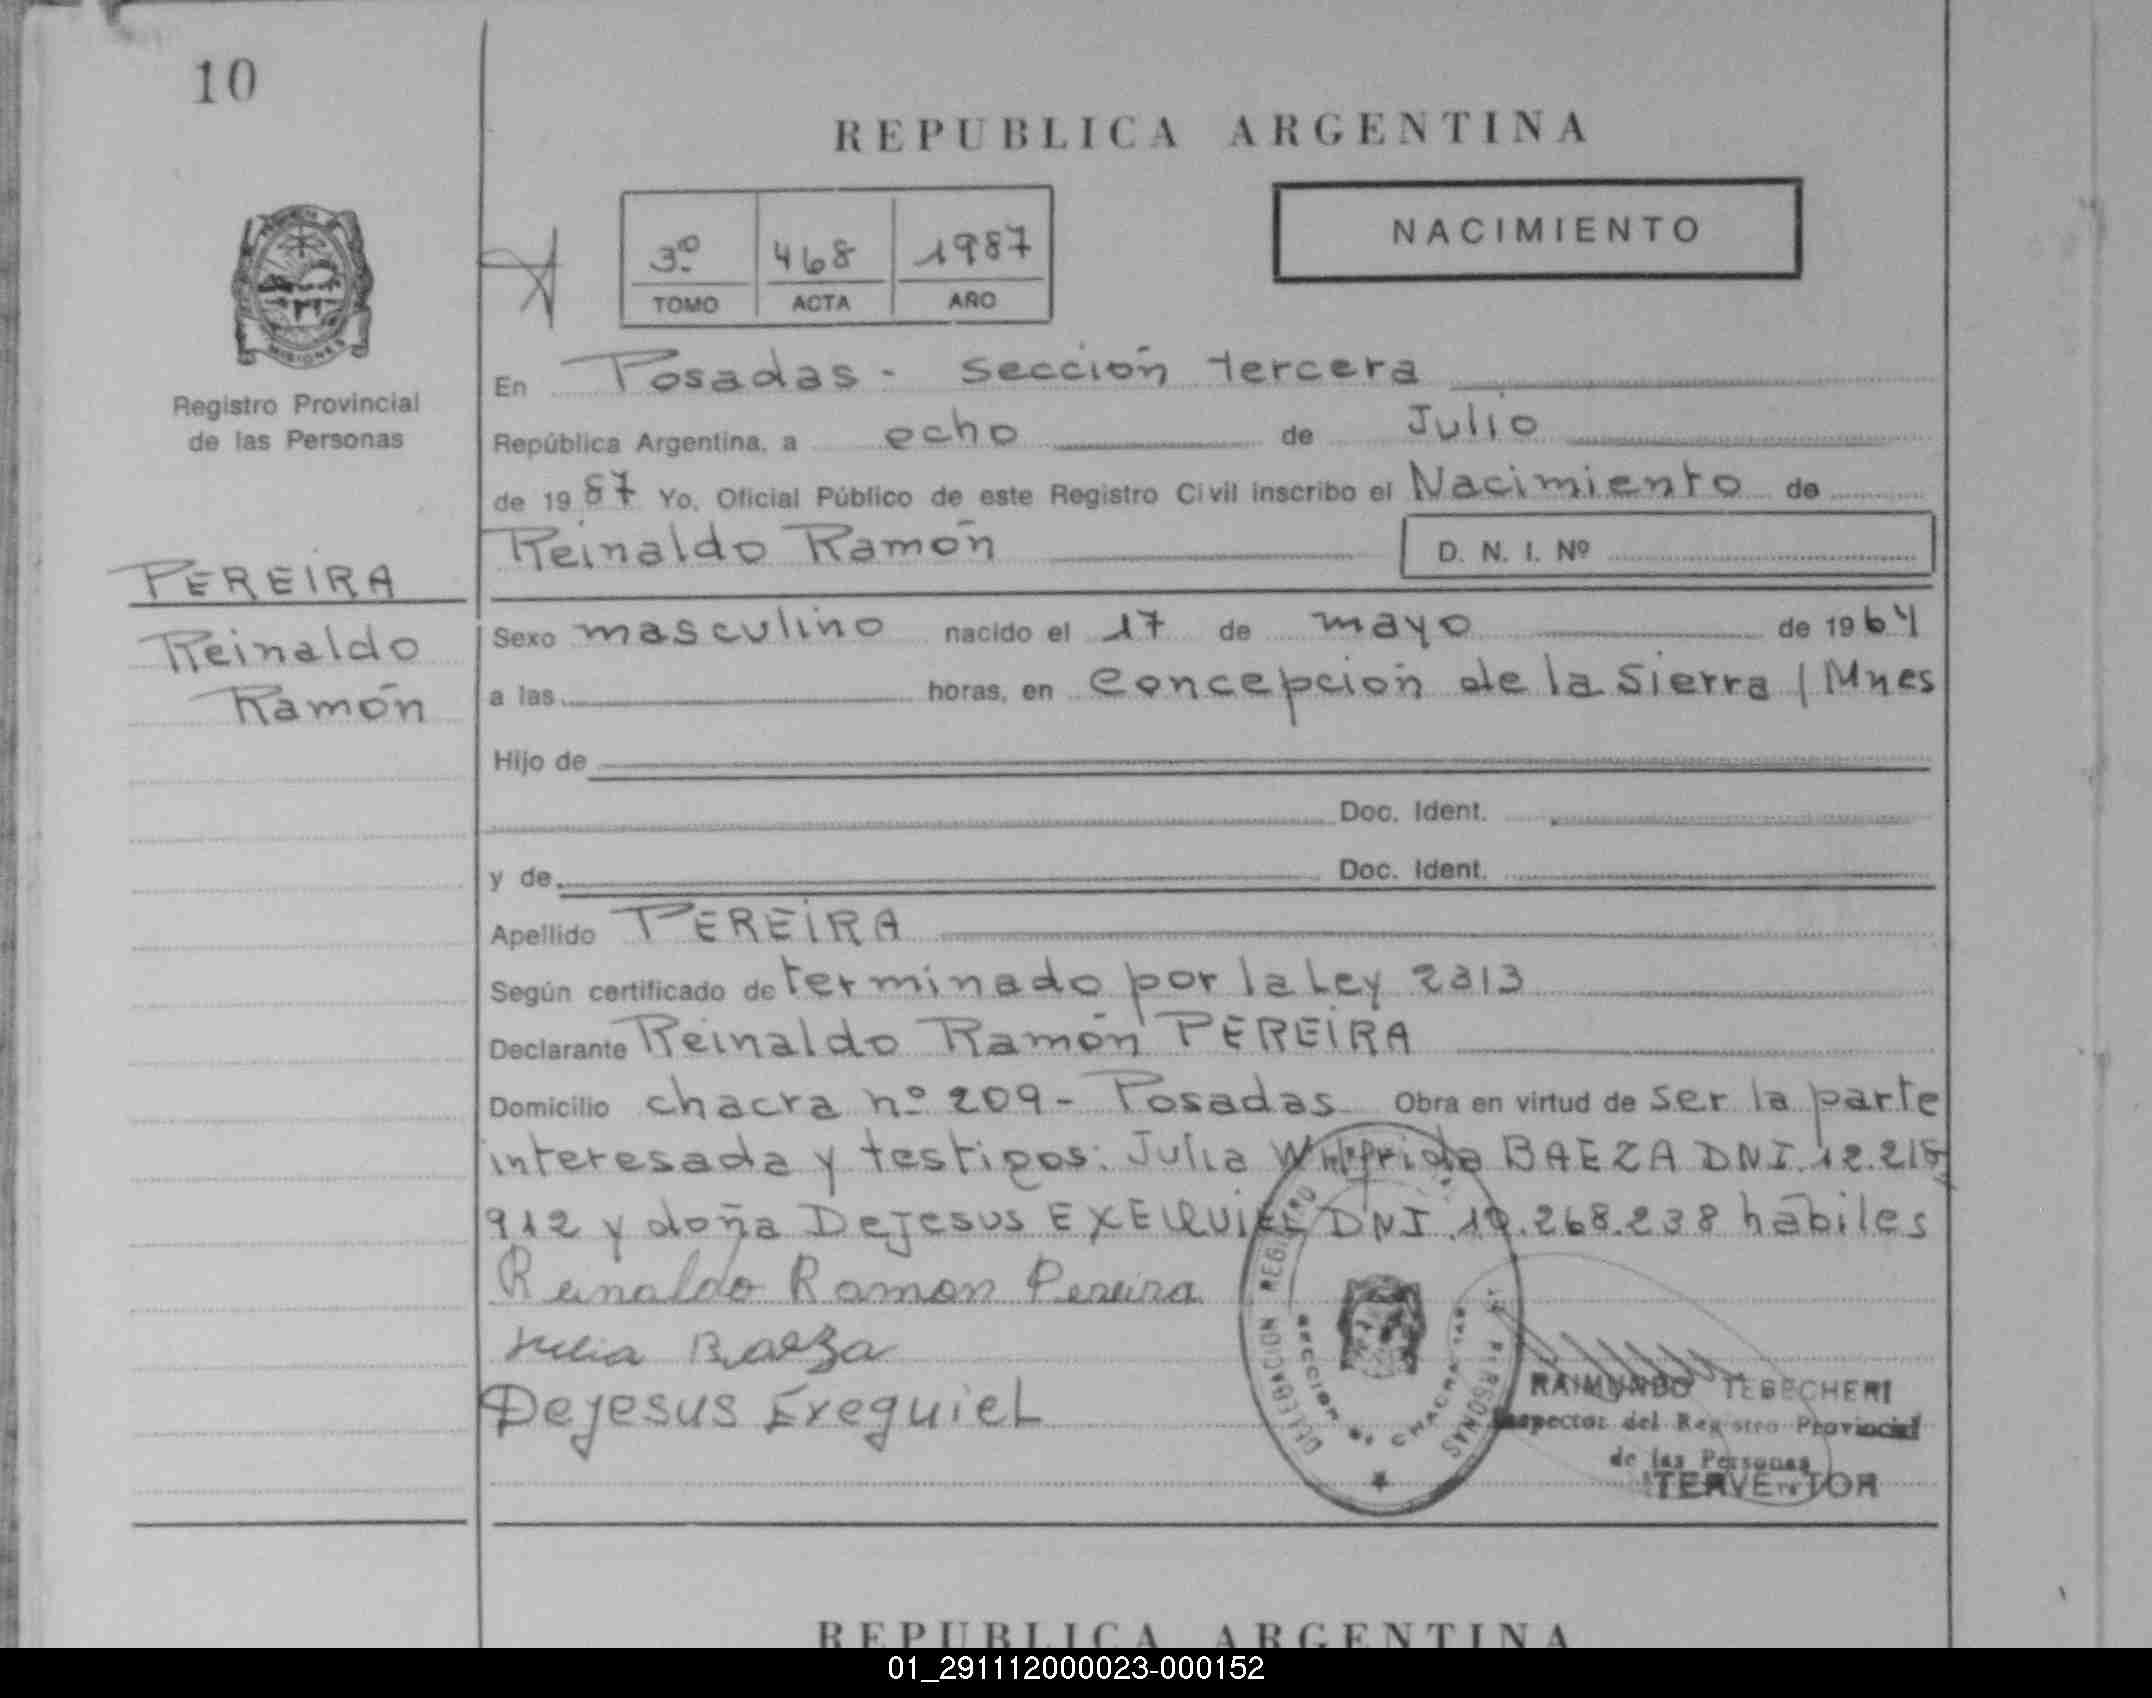 10
REPUBLICA ARGENTINA
NACIMIENTO
3º 468 1987
TOMO ACTA AÑO
MISIONES
Registro Provincial
de las Personas
PEREIRA
Reinaldo
Ramón
En Posadas - sección tercera
República Argentina, a ocho de Julio
de 1987 Yo, Oficial Público de este Registro Civil inscribo el Nacimiento de
Reinaldo Ramón D. N. I. Nº
Sexo masculino nacido el 17 de mayo de 1964
a las horas, en Concepción de la Sierra / Mnes
Hijo de
Doc. Ident.
y de Doc. Ident.
Apellido PEREIRA
Según certificado de terminado por la Ley 2313
Declarante Reinaldo Ramón PEREIRA
Domicilio chacra nº 209 - Posadas Obra en virtud de ser la parte
interesada y testigos: Julia BAEZA DNI. 12.218
912 y doña Dejesus EXEQUIEL DNI. 268.238 hábiles
Reinaldo Ramon Pereira
Julia Baeza
Dejesus Exequiel
DELEGACION REGISTRO PERSONAS
SECCION CHACRA
RAIMUNDO TEBECHERI
Inspector del Registro Provincial
de las Personas
01_291112000023-000152
REPUBLICA ARGENTINA